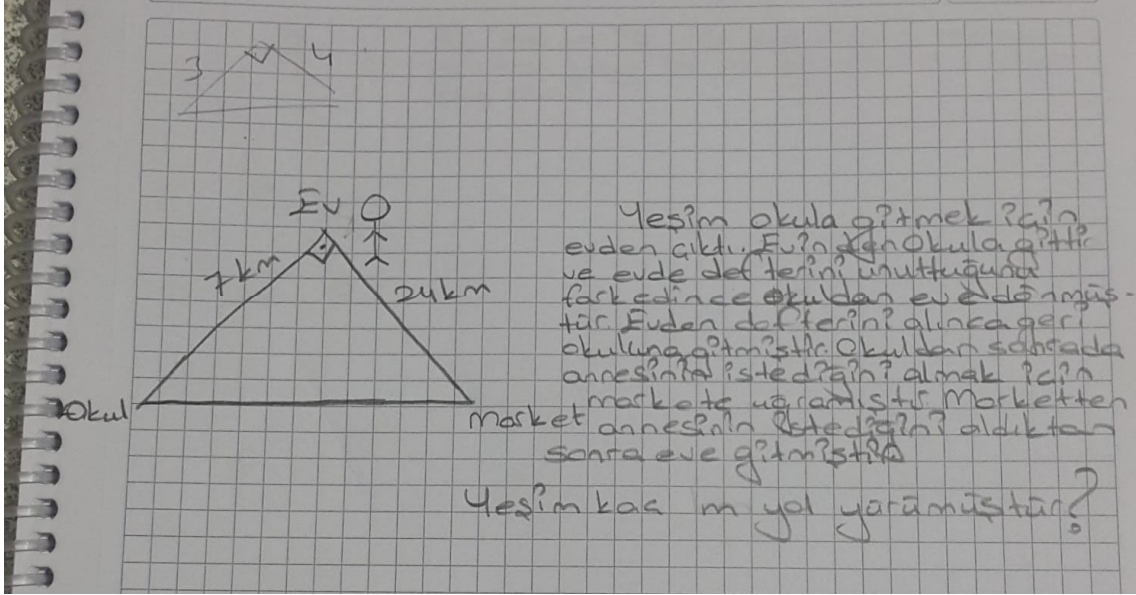 3 4
Ev
7km
24km
Okul
Market
Yeşim okula gitmek için
evden çıktı. Evinden Okula gitti
ve evde defterini unuttuğunu
fark edince okuldan eve dönmüş-
tür. Evden defterini alınca geri
okuluna gitmiştir. Okuldan sonrada
annesinin istediğini almak için
markete uğramıştır. Marketten
annesinin istediğini aldıktan
sonra eve gitmiştir
Yeşim kaç m yol yürümüştür?